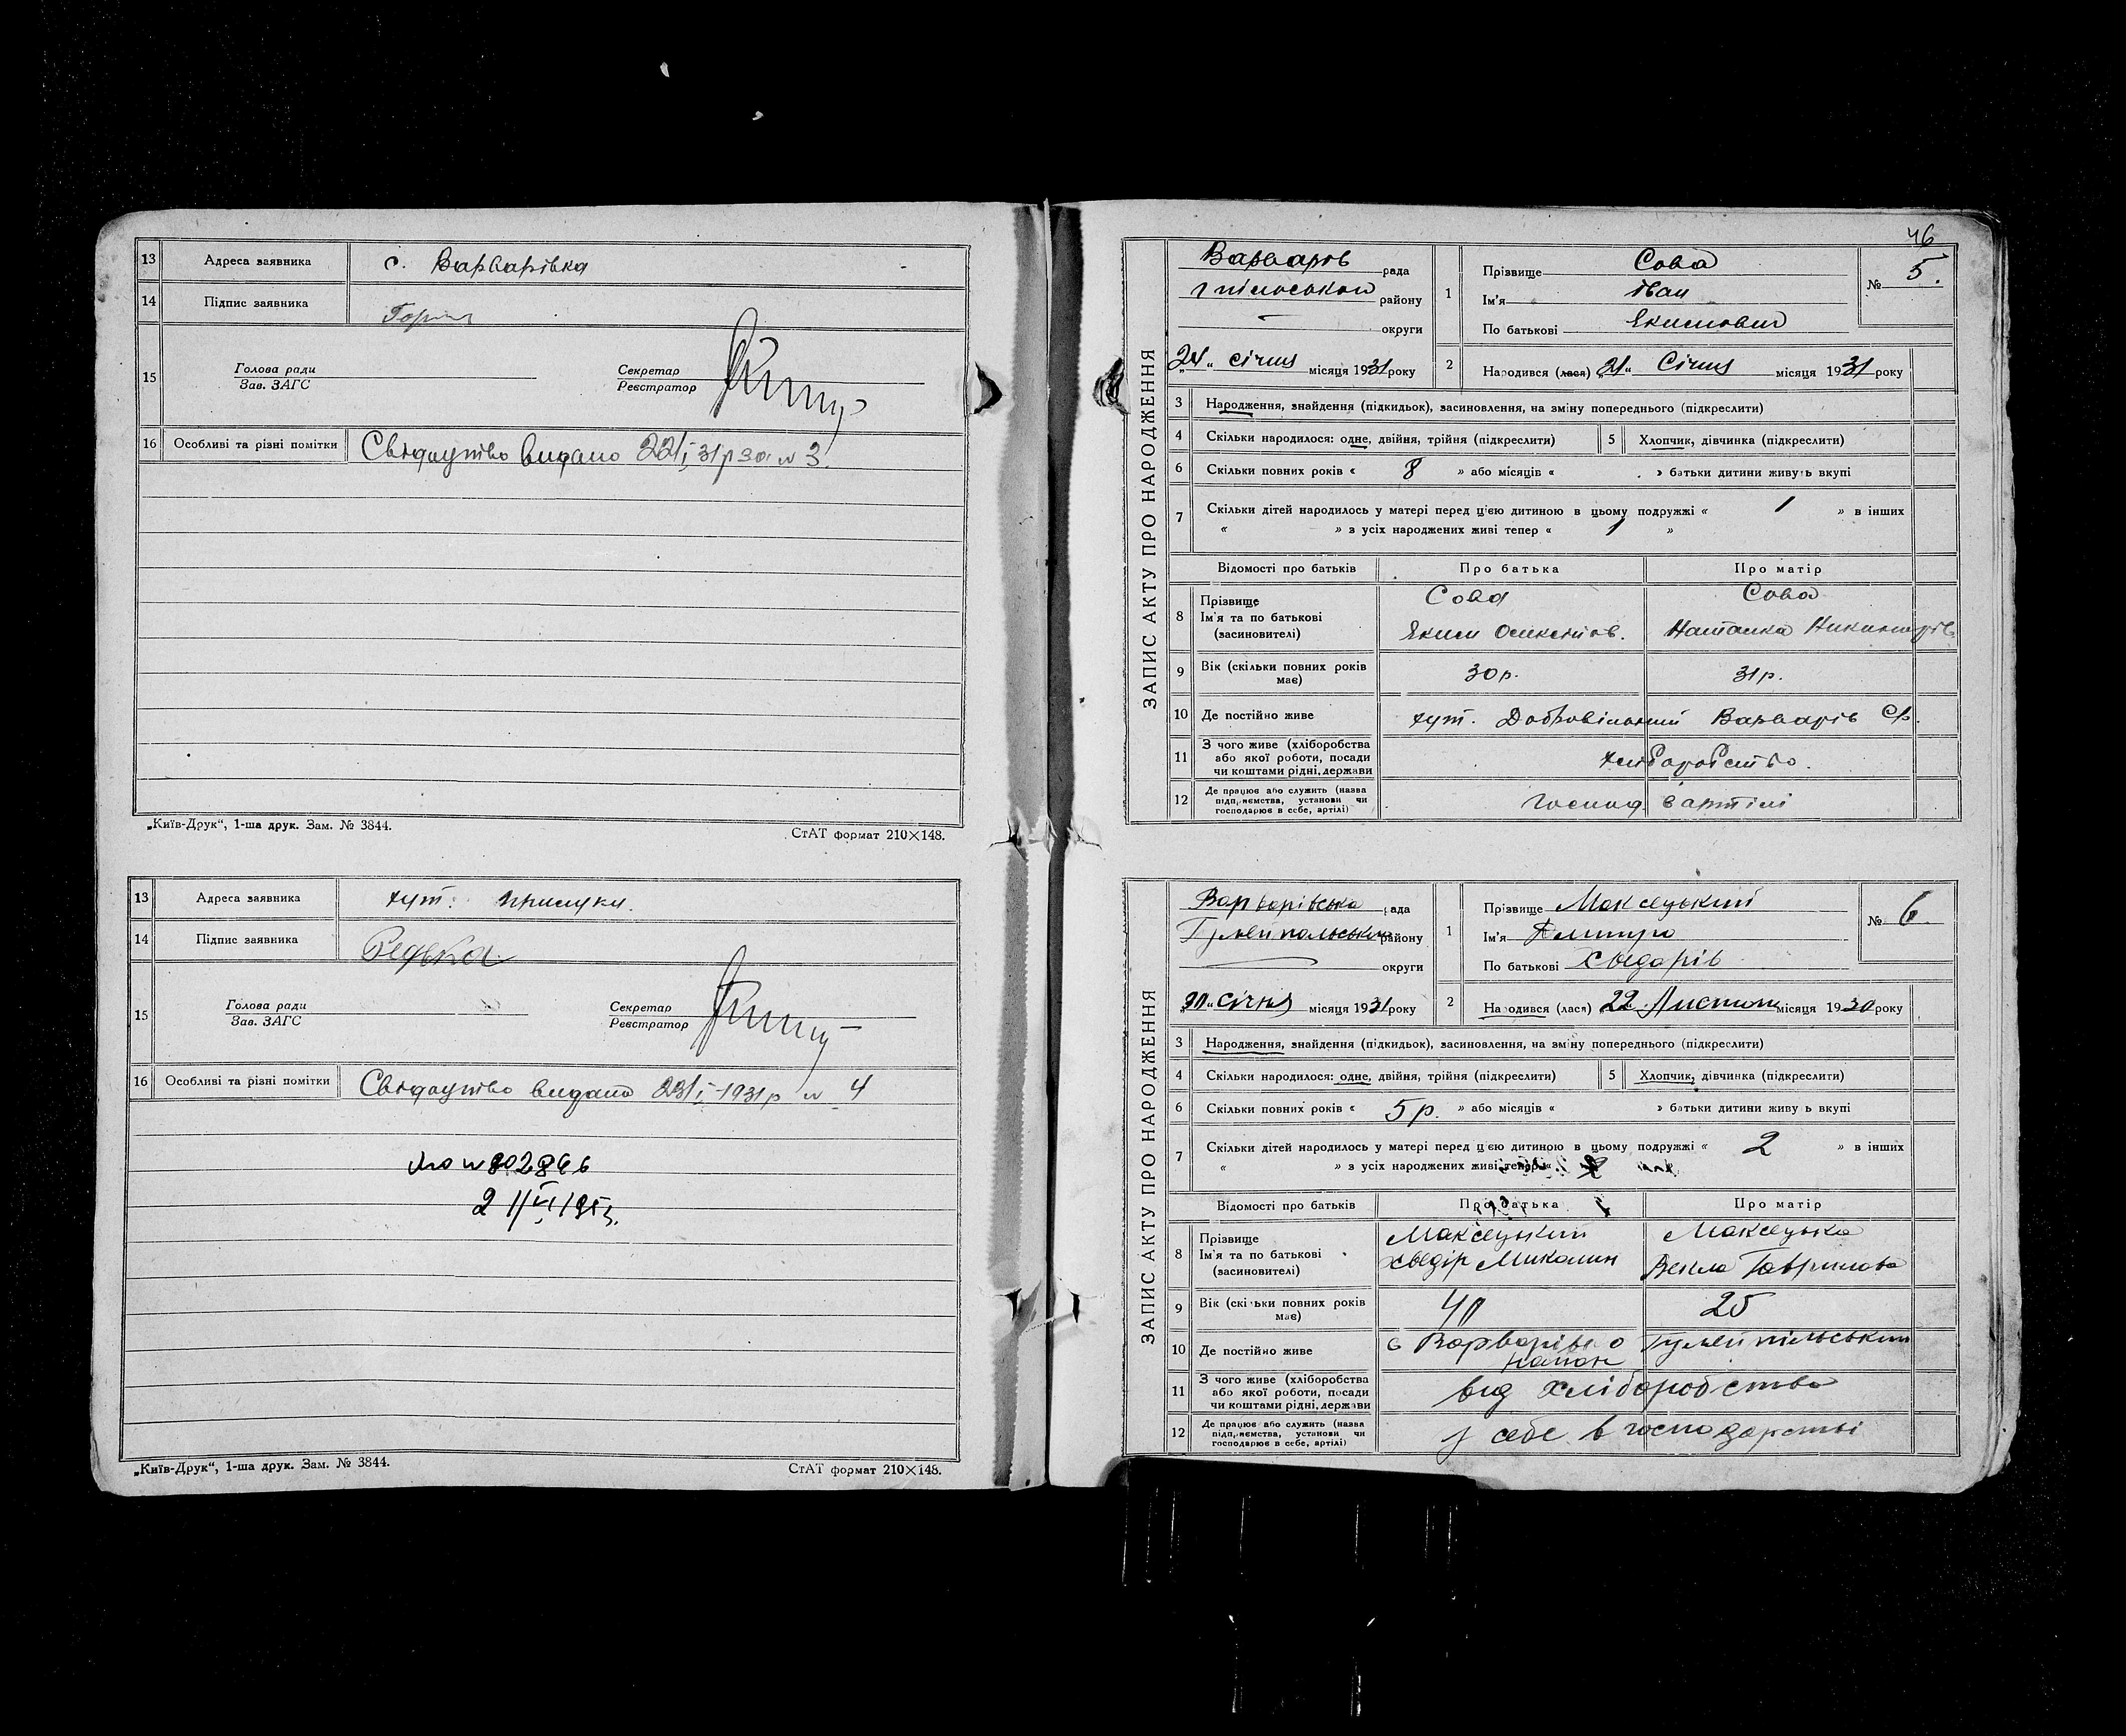 13 Адреса заявника с. Варварівка
14 Підпис заявника
15 Голова ради
Зав. ЗАГС
Секретар
Реєстратор
16 Особливі та різні помітки Свідоцтво видано 22/I 31р за № 3.
„Київ-Друк“, 1-ша друк. Зам. № 3844. СтАТ формат 210×148.
13 Адреса заявника хут. Прилуки.
14 Підпис заявника Редька
15 Голова ради
Зав. ЗАГС
Секретар
Реєстратор
16 Особливі та різні помітки Свідоцтво видано 23/I-1931р № 4
2
„Київ-Друк“, 1-ша друк. Зам. № 3844. СтАТ формат 210×148.
46
ЗАПИС АКТУ ПРО НАРОДЖЕННЯ
Варварів рада
району
округи
„24“ січня місяця 1931 року
1 Прізвище Сова
Ім'я Іван
По батькові Якимович
№ 5.
2 Народився (лася) „21“ Січня місяця 1931 року
3 Народження, знайдення (підкидьок), засиновлення, на зміну попереднього (підкреслити)
4 Скільки народилося: одне, двійня, трійня (підкреслити) 5 Хлопчик, дівчинка (підкреслити)
6 Скільки повних років « 8 » або місяців « » батьки дитини живуть вкупі
7 Скільки дітей народилось у матері перед цією дитиною в цьому подружжі « 1 » в інших
« » з усіх народжених живі тепер « 1 »
Відомості про батьків Про батька Про матір
8 Прізвище Сова Сова
Ім'я та по батькові Яким Наталка
(засиновителі)
9 Вік (скільки повних років має) 30р. 31р.
10 Де постійно живе хут. Добровільний Варварів С/р.
11 З чого живе (хліборобства
або якої роботи, посади
чи коштами рідні, держави хліборобство.
12 Де працює або служить (назва
підприємства, установи чи
господарює в себе, артілі) господ в артілі
ЗАПИС АКТУ ПРО НАРОДЖЕННЯ
Варварівська рада
Гуляйпольського району
округи
січня місяця 1931 року
1 Прізвище Макселуький
Ім'я Дмитро
По батькові Хведорів
№ 6.
2 Народився (лася) „22. Листопа місяця 1930 року
3 Народження, знайдення (підкидьок), засиновлення, на зміну попереднього (підкреслити)
4 Скільки народилося: одне, двійня, трійня (підкреслити) 5 Хлопчик, дівчинка (підкреслити)
6 Скільки повних років « 5р. » або місяців « » батьки дитини живуть вкупі
7 Скільки дітей народилось у матері перед цією дитиною в цьому подружжі « 2 » в інших
« » з усіх народжених живі тепер « 2
Відомості про батьків Про батька Про матір
8 Прізвище
Ім'я та по батькові Хведір Миколин Векла Гаврилова
(засиновителі)
9 Вік (скільки повних років має) 25
10 Де постійно живе с Варварівка Гуляйпільський
район
11 З чого живе (хліборобства
або якої роботи, посади
чи коштами рідні, держави від хліборобства
12 Де працює або служить (назва
підприємства, установи чи
господарює в себе, артілі) у себе в господарстві